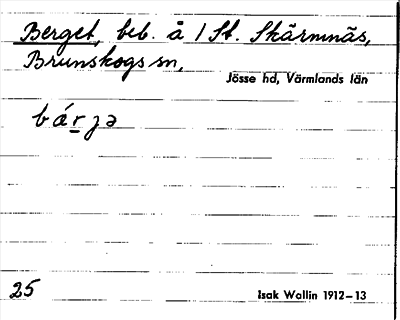 Berget, beb. å 1/St. Skärmnäs,
Brunskogs sn,
Jösse hd, Värmlands län
bárzə
25
Isak Wallin 1912–13